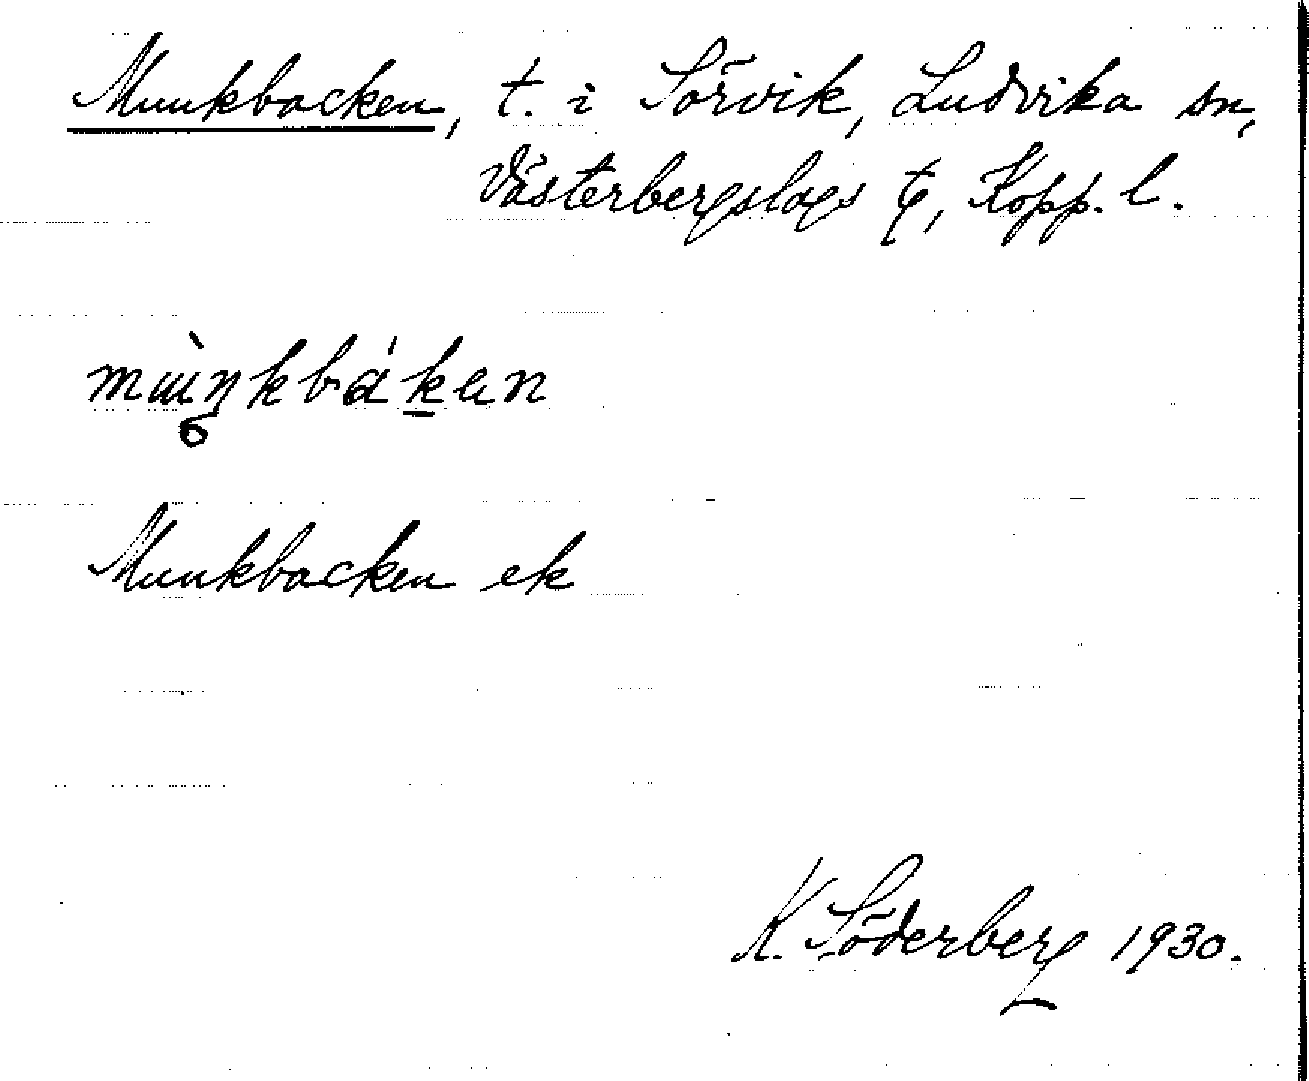 Munkbacken, t. i Sörvik, Ludvika sn,
Västerbergslags tg, Kopp. l.
Munkbacken ek
K. Söderberg 1930.